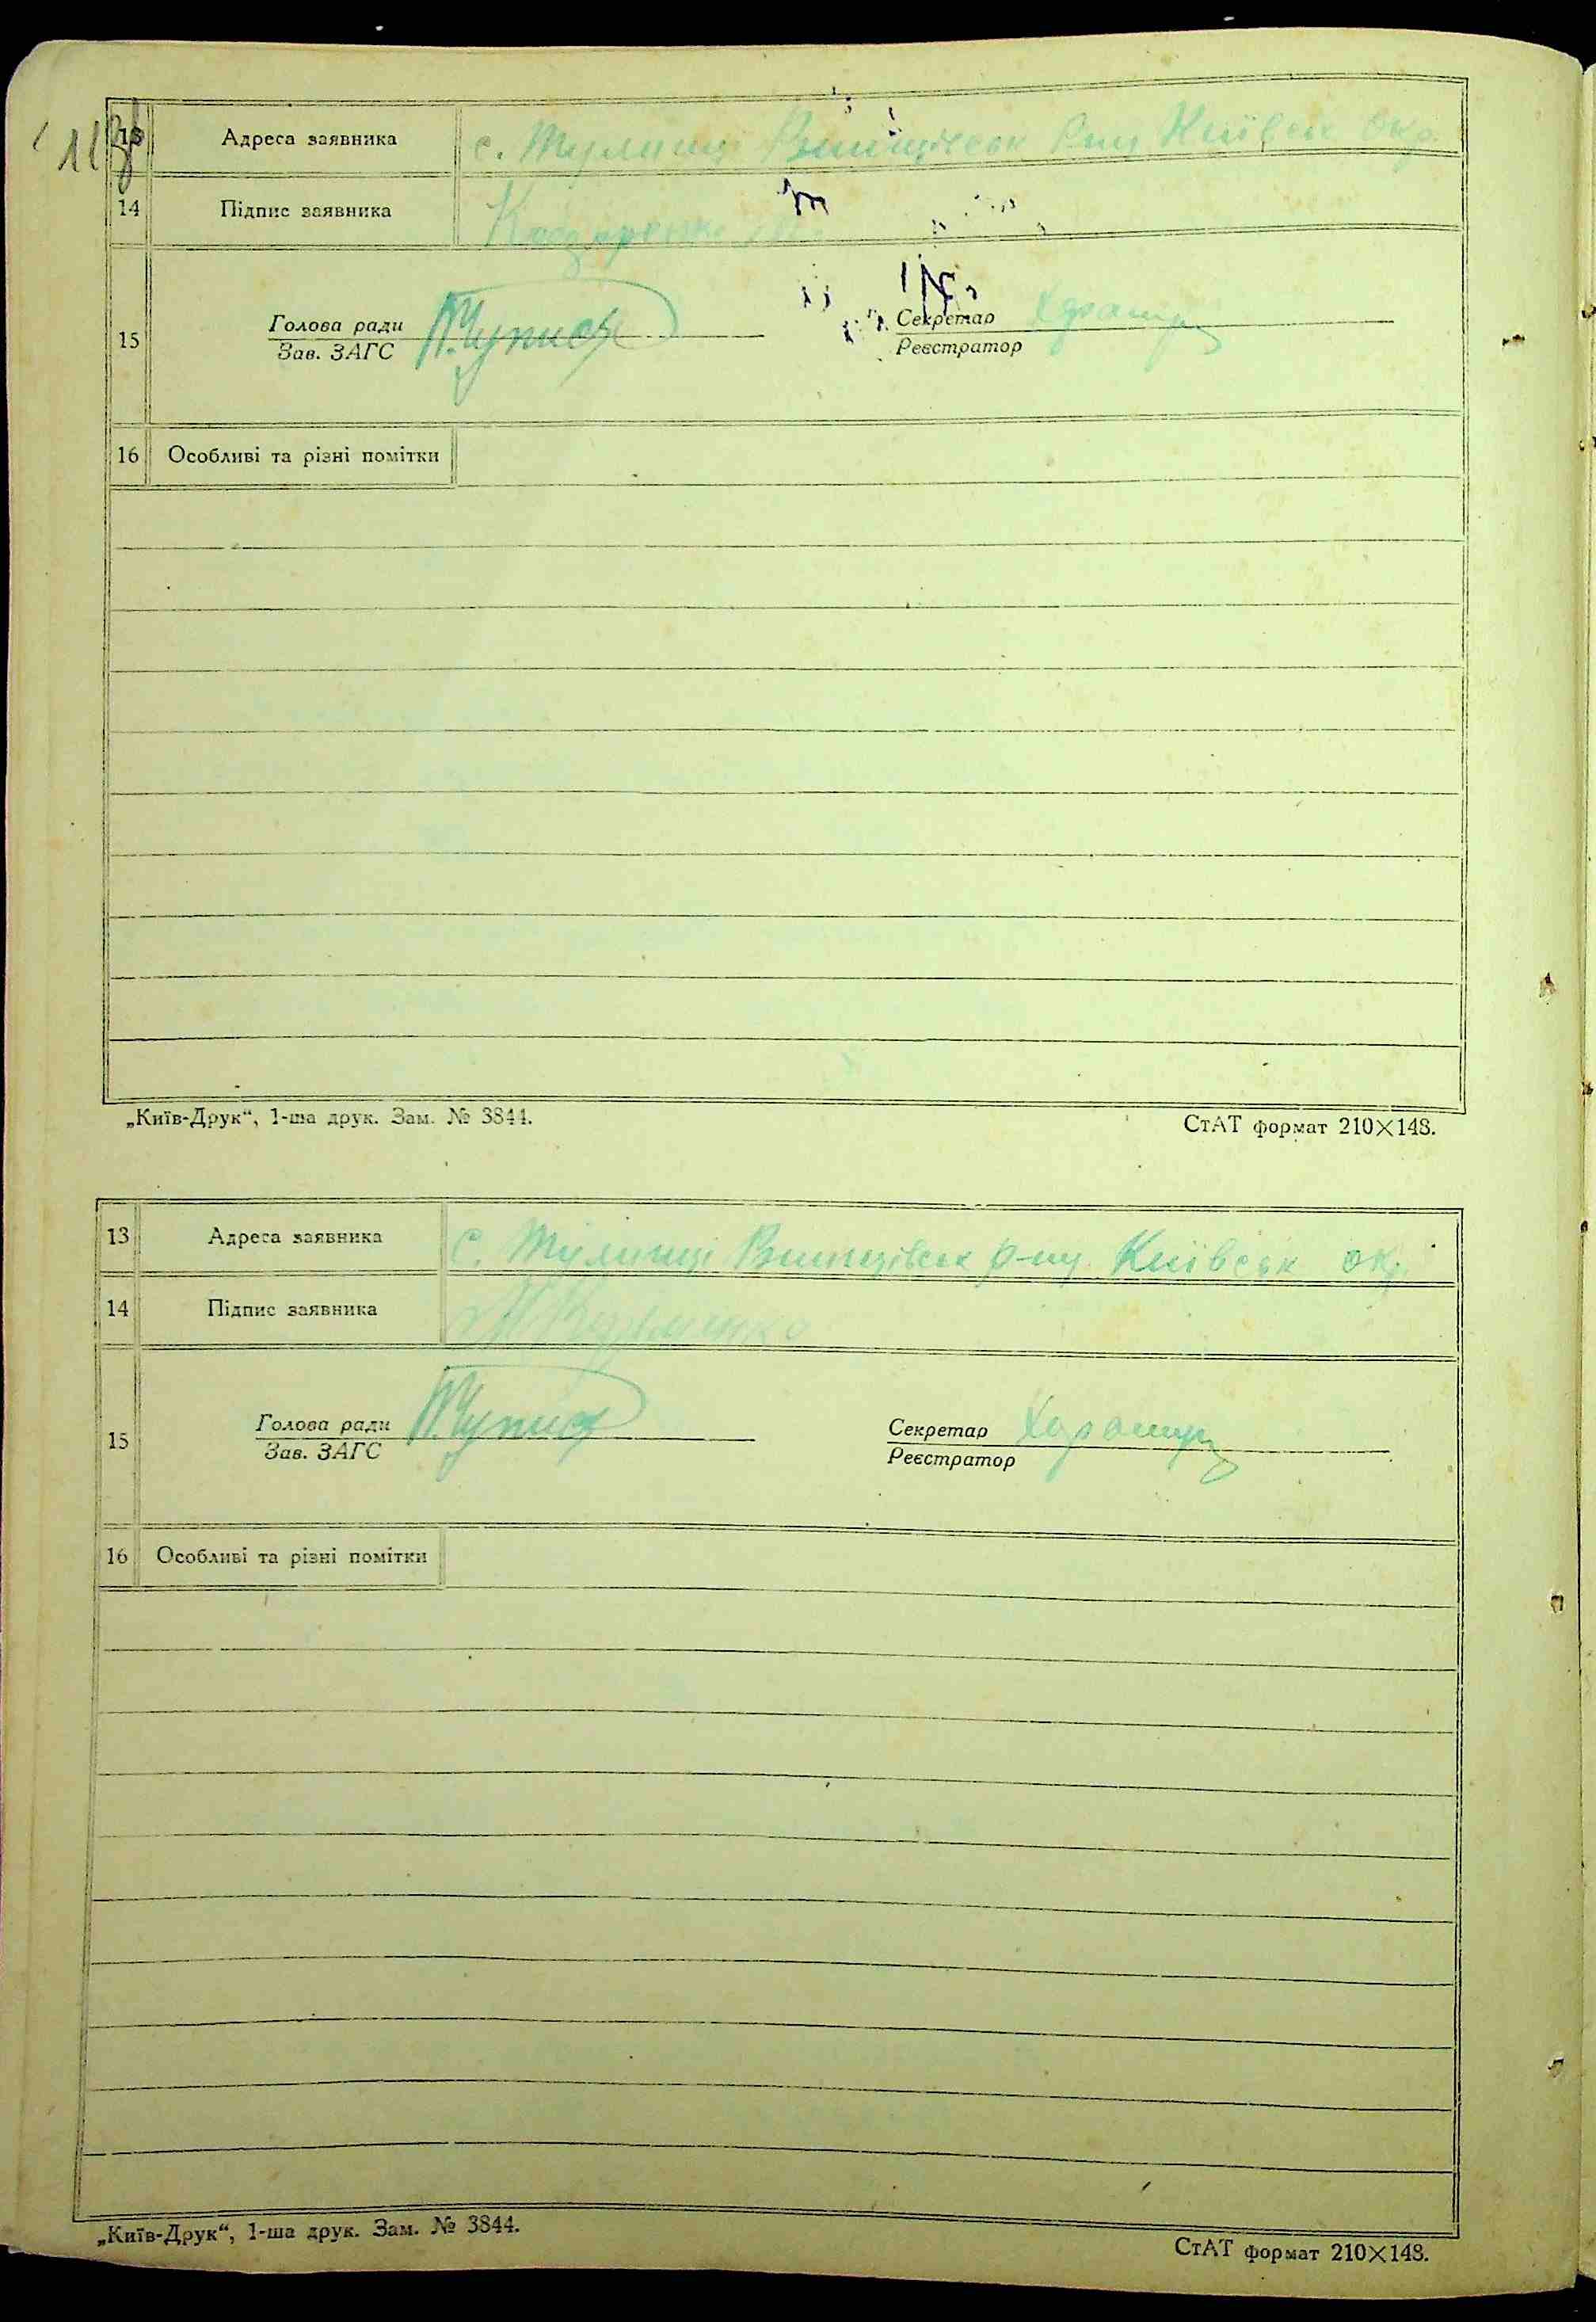 13 Адреса заявника с. Тулинці Ржищівськ р-ну Київськ окр.
14 Підпис заявника
15 Голова ради Секретар
Зав. ЗАГС Реєстратор
16 Особливі та різні помітки
„Київ-Друк“, 1-ша друк. Зам. № 3844. СтАТ формат 210×148.
13 Адреса заявника с. Тулинці Ржищівськ р-ну Київськ окр.
14 Підпис заявника Кузьменко
15 Голова ради Секретар
Зав. ЗАГС Реєстратор
16 Особливі та різні помітки
„Київ-Друк“, 1-ша друк. Зам. № 3844. СтАТ формат 210×148.